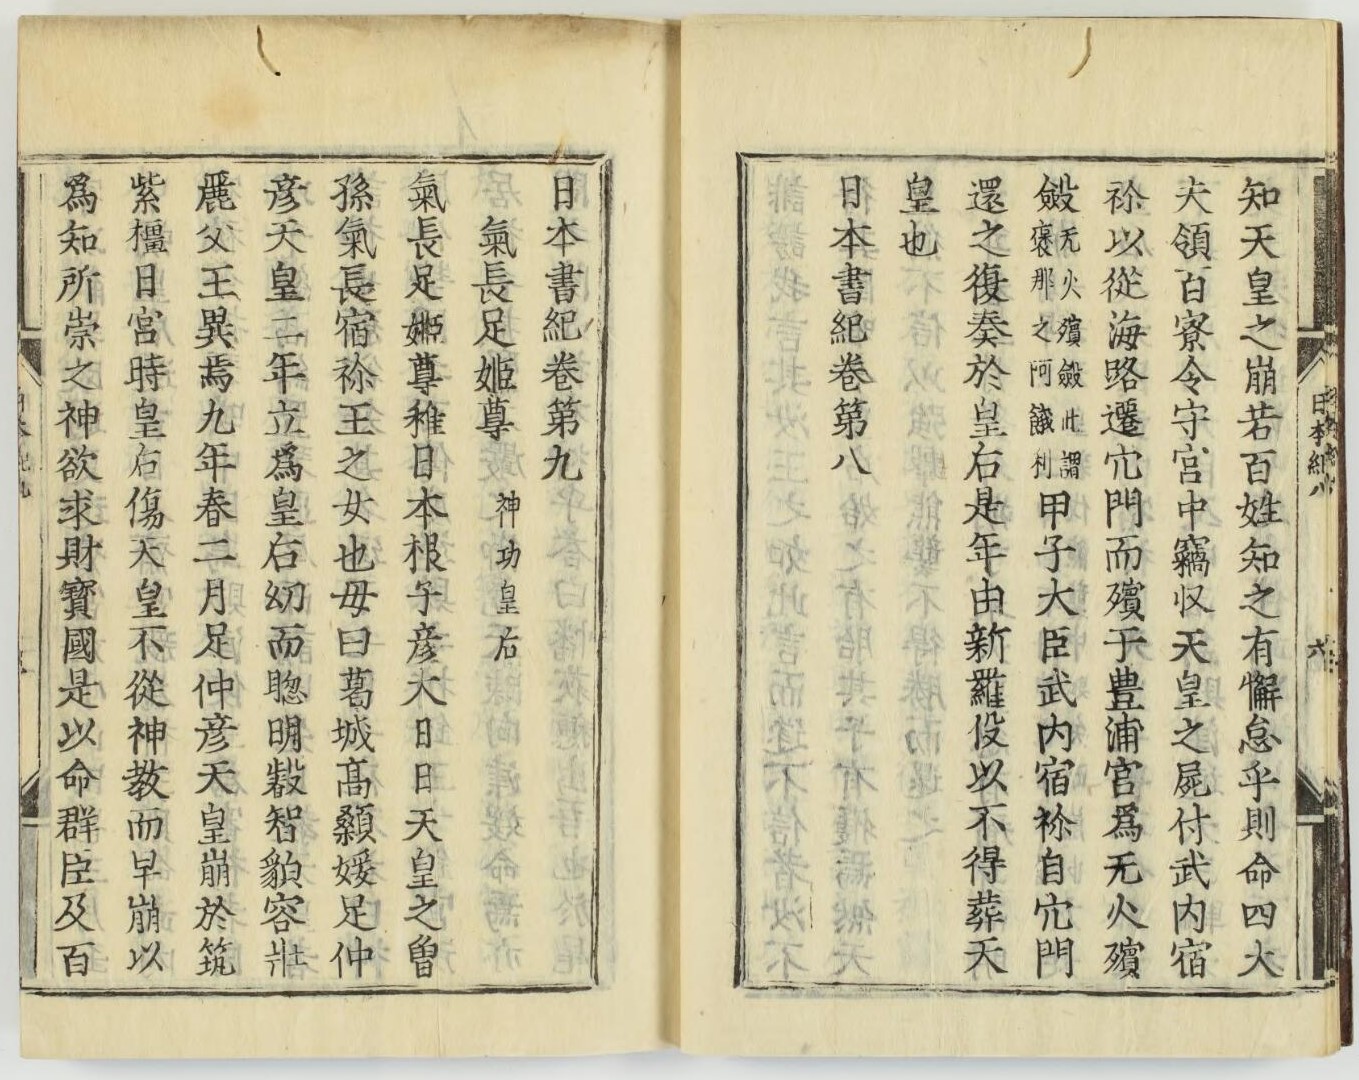 知天皇之崩若百姓知之有懈怠乎則命四大
夫領百寮令守宮中竊収天皇之屍付武内宿
祢以從海路遷宂門而殯于豊浦宮爲无火殯
斂
无火殯斂此謂
褒那之阿餓利
甲子大臣武内宿祢自宂門
還之復奏於皇后是年由新羅役以不得葬天
皇也
日本書紀卷第八
日本紀八
六
日本書紀卷第九
氣長足姬尊
神功皇后
氣長足姬尊稚日本根子彦大日日天皇之曽
孫氣長宿祢王之女也母曰葛城高顙媛足仲
彦天皇二年立爲皇后幼而聰明叡智貌容壯
麗父王異焉九年春二月足仲彦天皇崩於筑
紫橿日宮時皇后傷天皇不從神教而早崩以
爲知所崇之神欲求財寶國是以命群臣及百